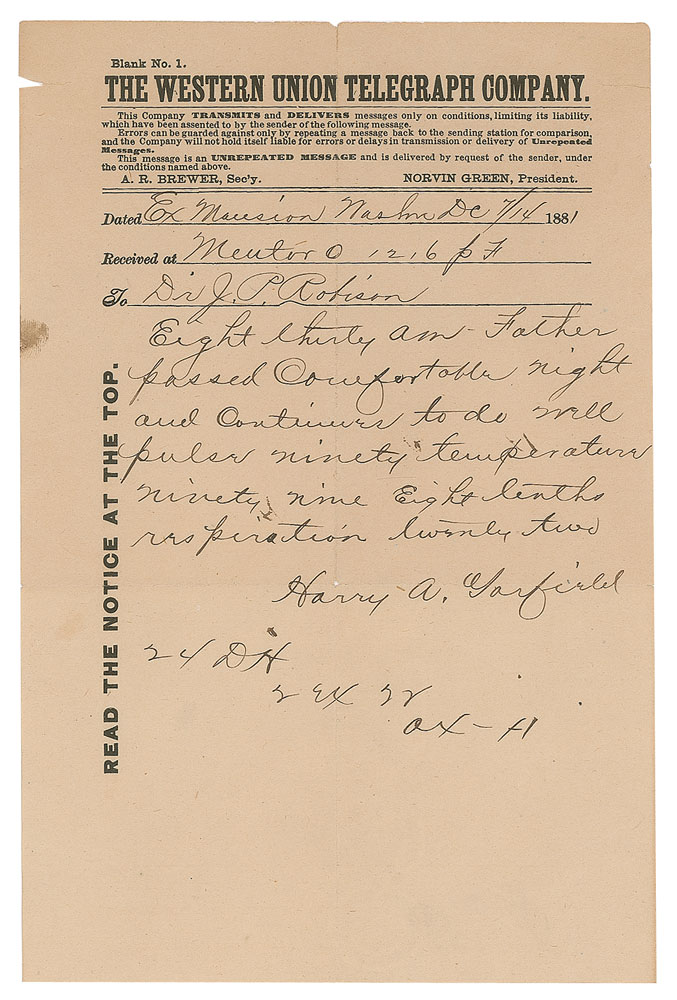 Blank No. 1.
THE WESTERN UNION TELEGRAPH COMPANY.
This Company TRANSMITS and DELIVERS messages only on conditions, limiting its liability,
which have been assented to by the sender of the following message.
Errors can be guarded against only by repeating a message back to the sending station for comparison,
and the Company will not hold itself liable for errors or delays in transmission or delivery of Unrepeated
Messages.
This message is an UNREPEATED MESSAGE and is delivered by request of the sender, under
the conditions named above.
A. R. BREWER, Sec'y. NORVIN GREEN, President.
Dated Ex Mansion Washn DC 7/14 1881
Received at Mentor O 12,16 p
To Dr J. P. Robison
Eight thirty am - Father
passed Comfortable night
and Continues to do well
pulse ninety temperature
ninety nine Eight tenths
respiration twenty two
Harry A. Garfield
24 DH
READ THE NOTICE AT THE TOP.